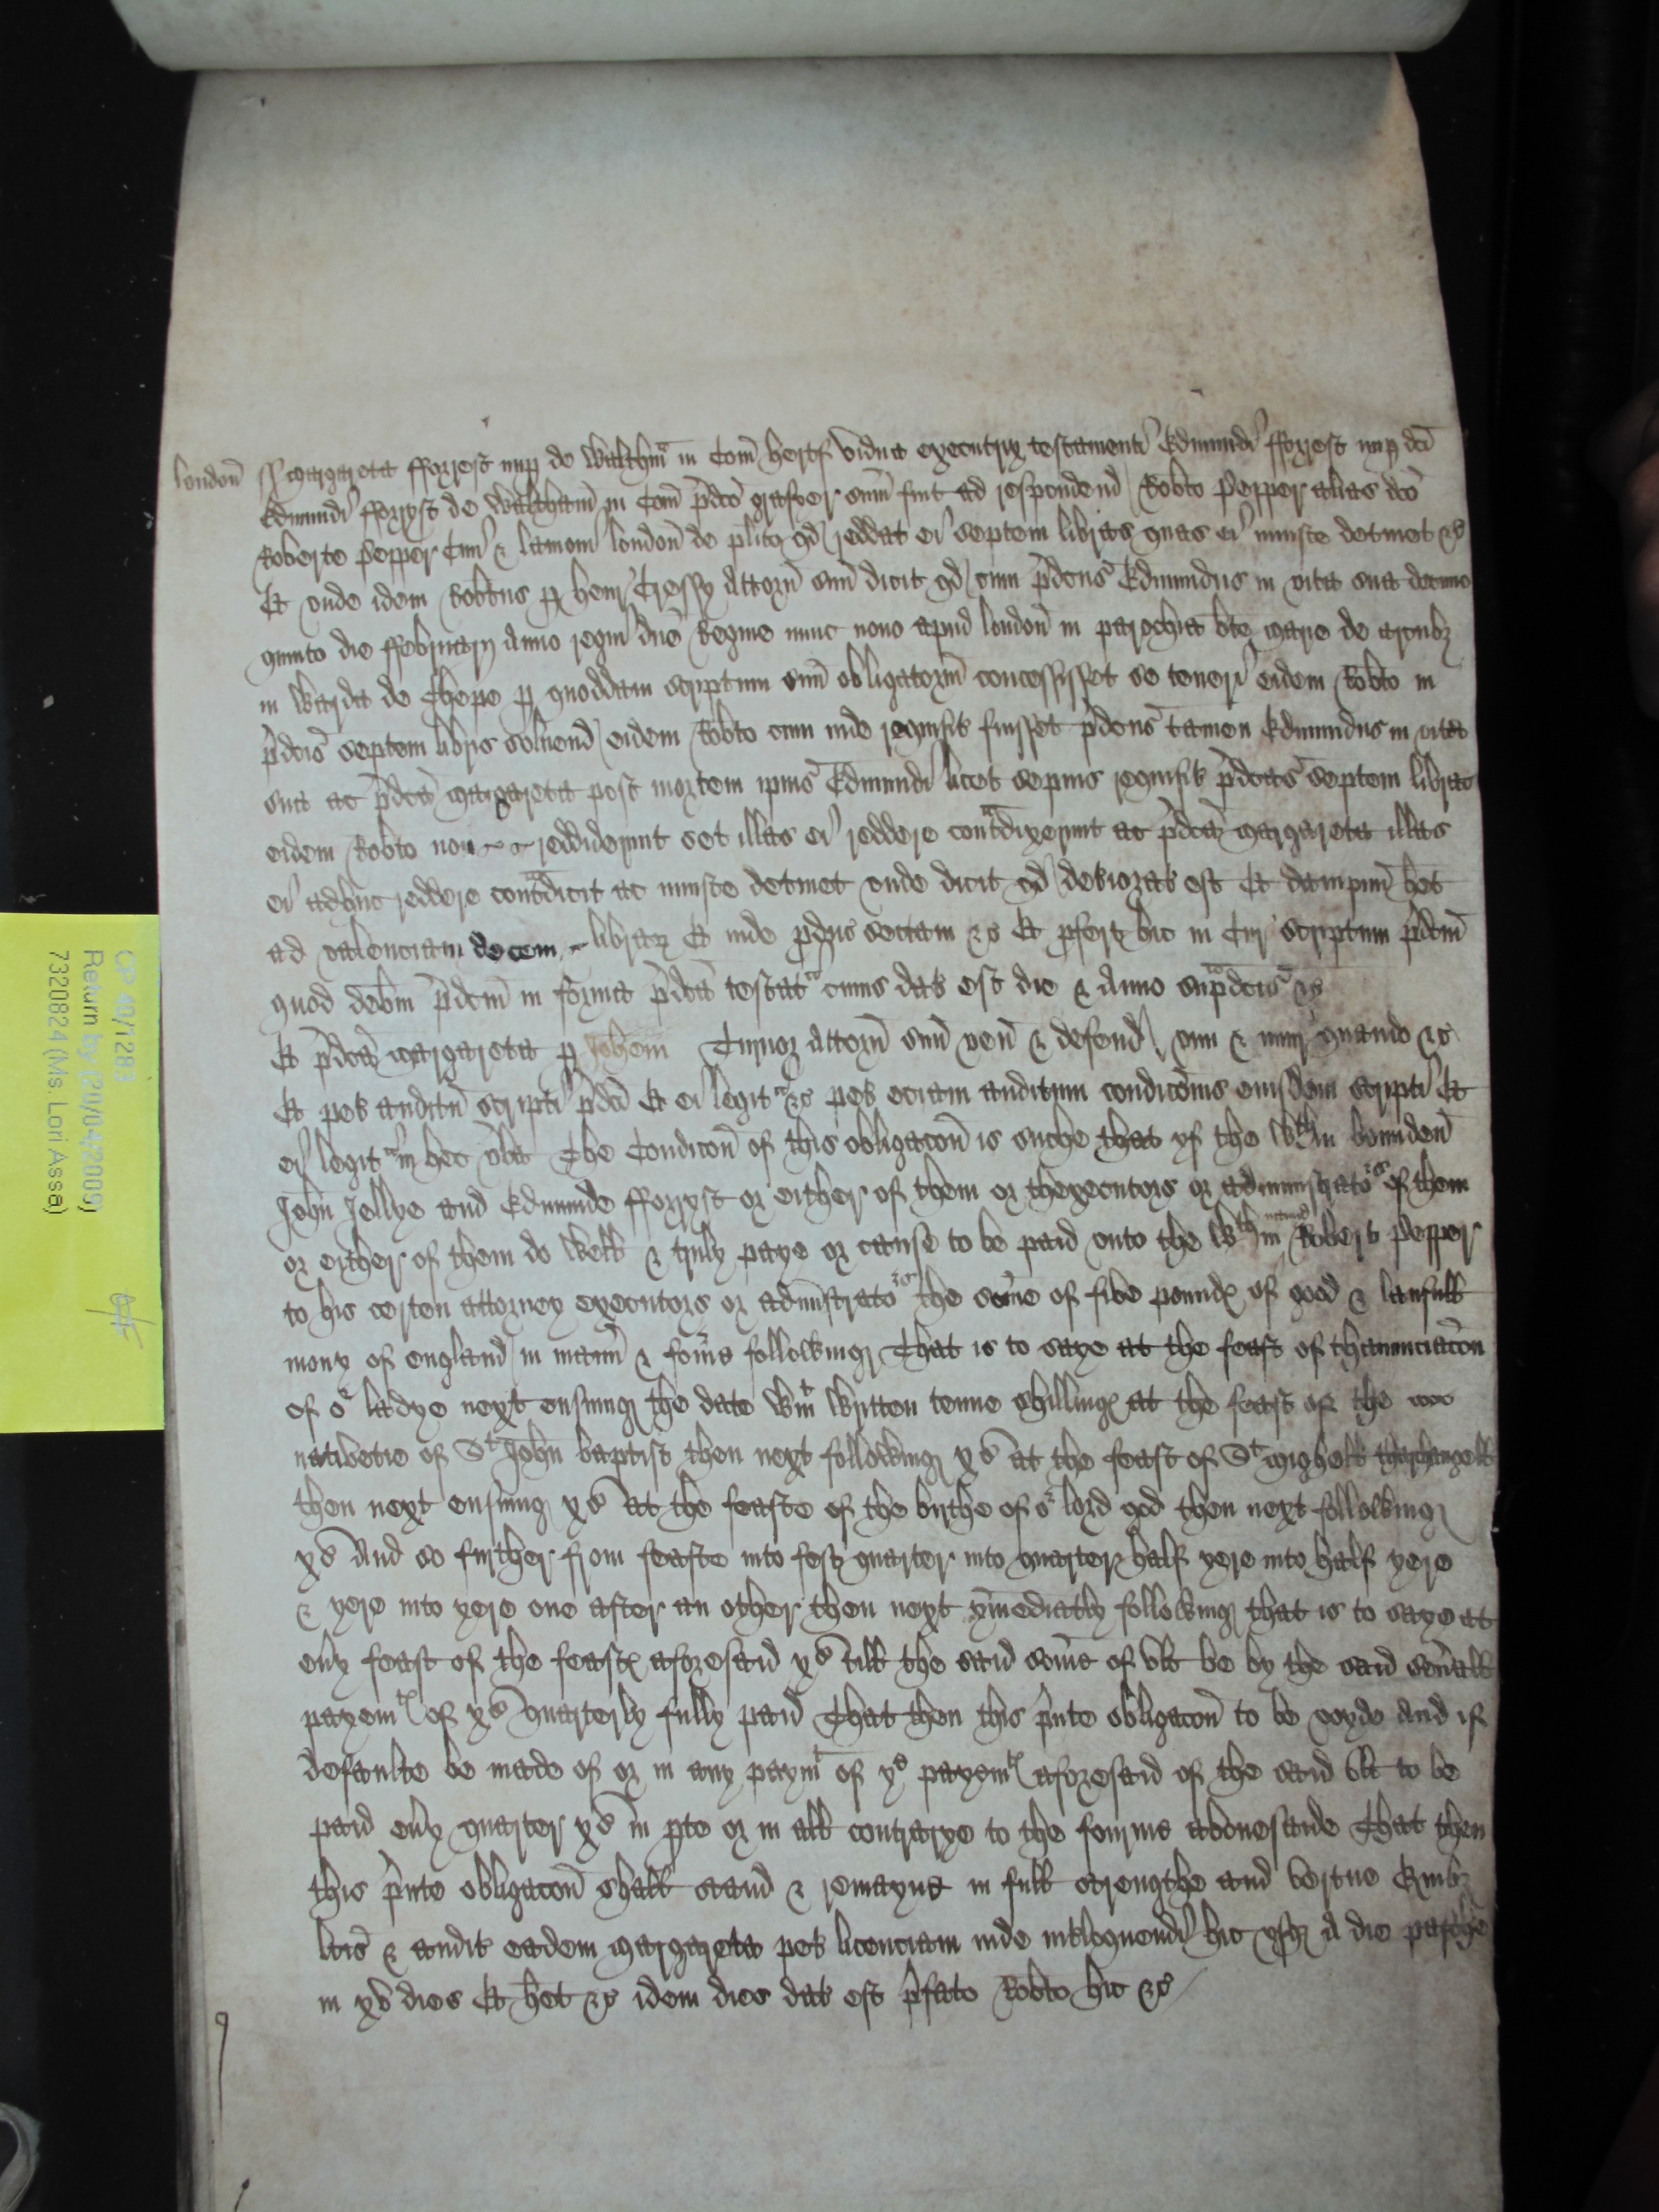 london ss margareta fforrest nup de Walthm in Com hertf vidua executrix testamenti Edmundi fforrest nup dci
Edmundi fforryst de Waltham in Com pdco sum fuit ad respondend Robto Pepper alias dco
Roberto Pepper Civi & london de plito qd reddat ei septem libras quas ei iniuste detinet &c
Et unde idem Robtus p henr Cressy Attorn suu dicit qd cum pdcus Edmundus in vita sua decimo
quinto die ffebruarij Anno regni dne Regine nunc nono apud london in parochia bte marie de arcubz
in Warda de Chepe p quoddam scriptum suu obligatorm concessisset se teneri eidem Robto in
pdcis septem libris solvend eidem Robto cum inde requisit fuisset pdcus tamen Edmundus in vita
sua ac pdca margareta post mortem ipius Edmundi licet sepius requisit pdcas septem libras
eidem Robto non reddiderunt set illas ei reddere contradixerunt ac pdca margareta illas
ei adhuc reddere contradicit ac iniuste detinet unde dicit qd deteriorat est Et dampnu het
ad valenciam decem librar Et inde pducit sectam &c Et pfert hic in Cur scriptum pdcm
quod debm pdcm in forma pdca testat cuius dat est die & Anno supadcis &c
Et pdca margareta p Johem Turnor Attorn suu ven & defend vim & iniur quando &c
Et pet auditu scripti pdci Et ei legit &c pet eciam auditum condicois eiusdem scripti Et
ei legit in hec vba The Condicon of this obligacon is suche that yf the Wthin bounden
John Jellye and Edmunde fforryst or either of them or thexecutors or administrators of them
or either of them do Well & truly paye or cause to be paid unto the Wthin named Robert Pepper
to his certen attorney executors or administrators the some of five pounds of good & laufull
mony of england in mann & forme following That is to saye at the feast of thanunciacon
of or ladye next ensuing the date Wtin Wrytten tenne shillings at the feast of the
nativetie of St John baptist then next following xs at the feast of St mighell tharchangell
then next ensuing xs at the feaste of the birthe of or lord god then next following
xs And so further from feaste into fest quarter into quarter half yere into half yere
& yere into yere one after an other then next ymediatly following that is to saye at
evy feast of the feasts aforesaid xs till the said some of vli be by the said sevall
payemts of xs quarterly fully paid That then this psnte obligacon to be voyde And if
defaulte be made of or in any paymt of ye payemts aforesaid of the said vli to be
paid evy quarter xs in pte or in all contrarye to the fourme abovesaide That then
this psnte obligacon shall stand & remayne in full strengthe and vertue Quibz
lcis & audit eadem margareta pet licenciam inde intloquendi hic usqz A die pasche
in xv dies Et het &c idem dies dat est pfato Robto hic &c
CP 40/1283
Return by (20/04/2009)
7320824 (Ms. Lori Assa)